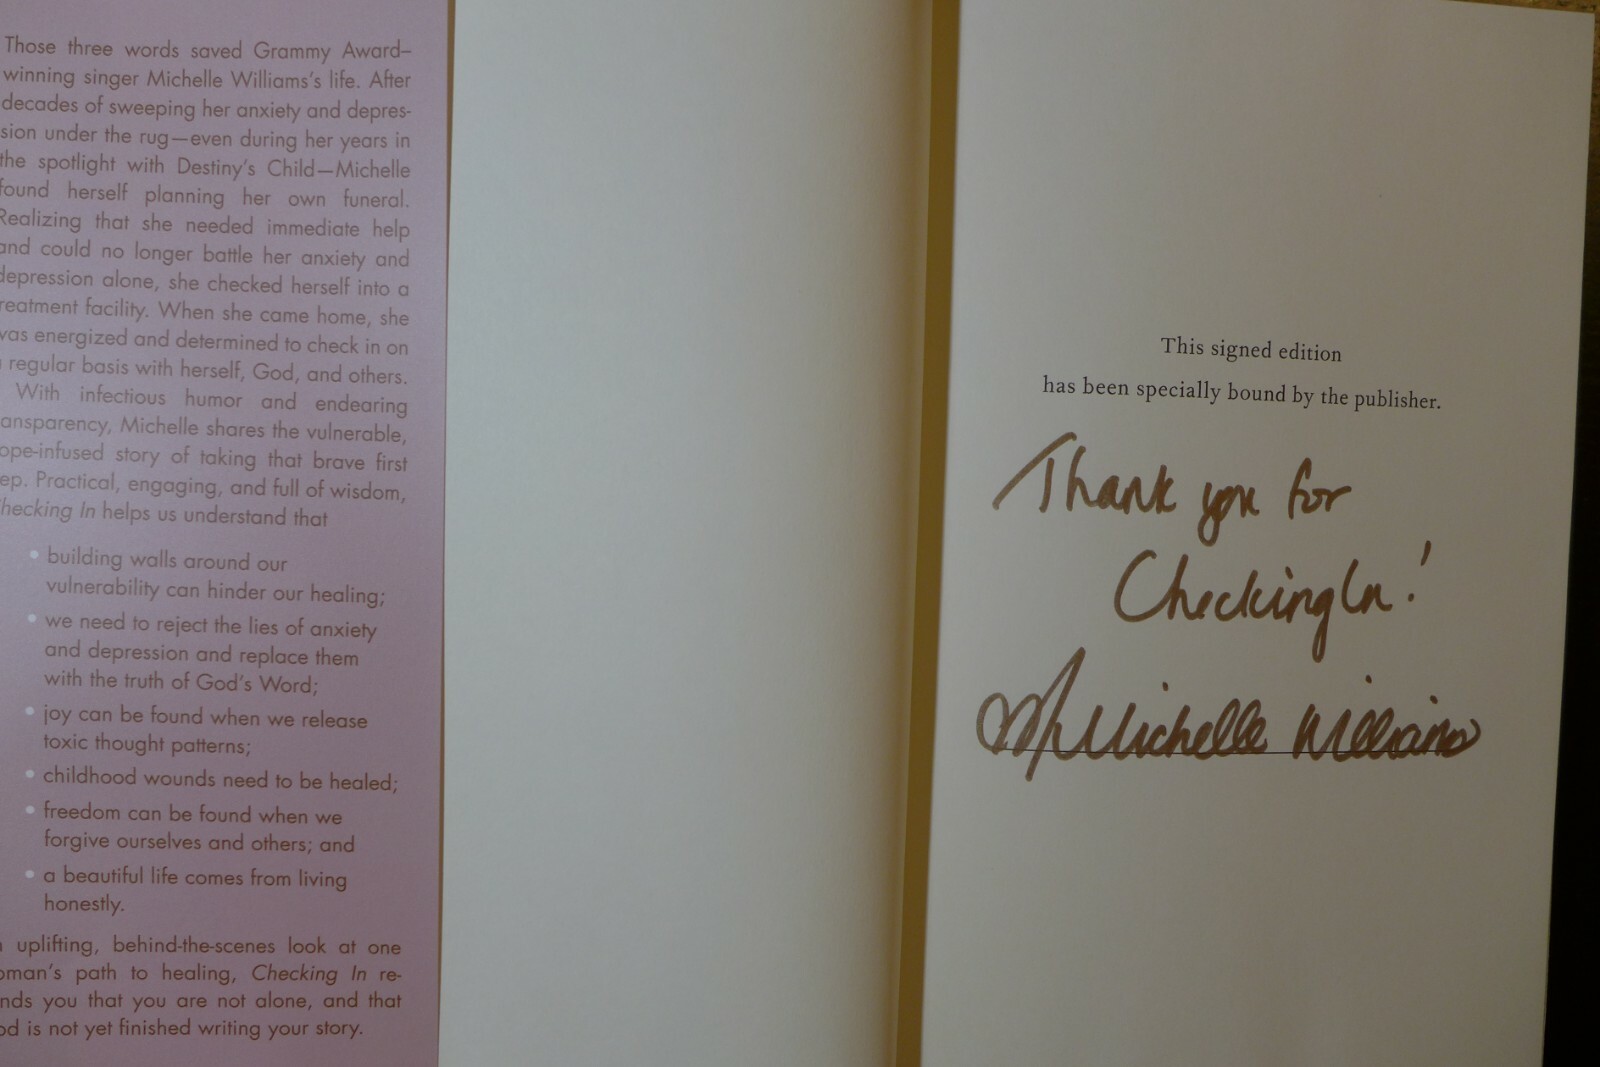 Those three words saved Grammy Award–
winning singer Michelle Williams's life. After
decades of sweeping her anxiety and depres-
sion under the rug—even during her years in
the spotlight with Destiny's Child—Michelle
found herself planning her own funeral.
Realizing that she needed immediate help
and could no longer battle her anxiety and
depression alone, she checked herself into a
reatment facility. When she came home, she
was energized and determined to check in on
regular basis with herself, God, and others.
With infectious humor and endearing
ansparency, Michelle shares the vulnerable,
ope-infused story of taking that brave first
ep. Practical, engaging, and full of wisdom,
hecking In helps us understand that
• building walls around our
vulnerability can hinder our healing;
• we need to reject the lies of anxiety
and depression and replace them
with the truth of God's Word;
• joy can be found when we release
toxic thought patterns;
• childhood wounds need to be healed;
• freedom can be found when we
forgive ourselves and others; and
• a beautiful life comes from living
honestly.
uplifting, behind-the-scenes look at one
oman's path to healing, Checking In re-
nds you that you are not alone, and that
od is not yet finished writing your story.
This signed edition
has been specially bound by the publisher.
Thank you for
Checking In!
Michelle Williams